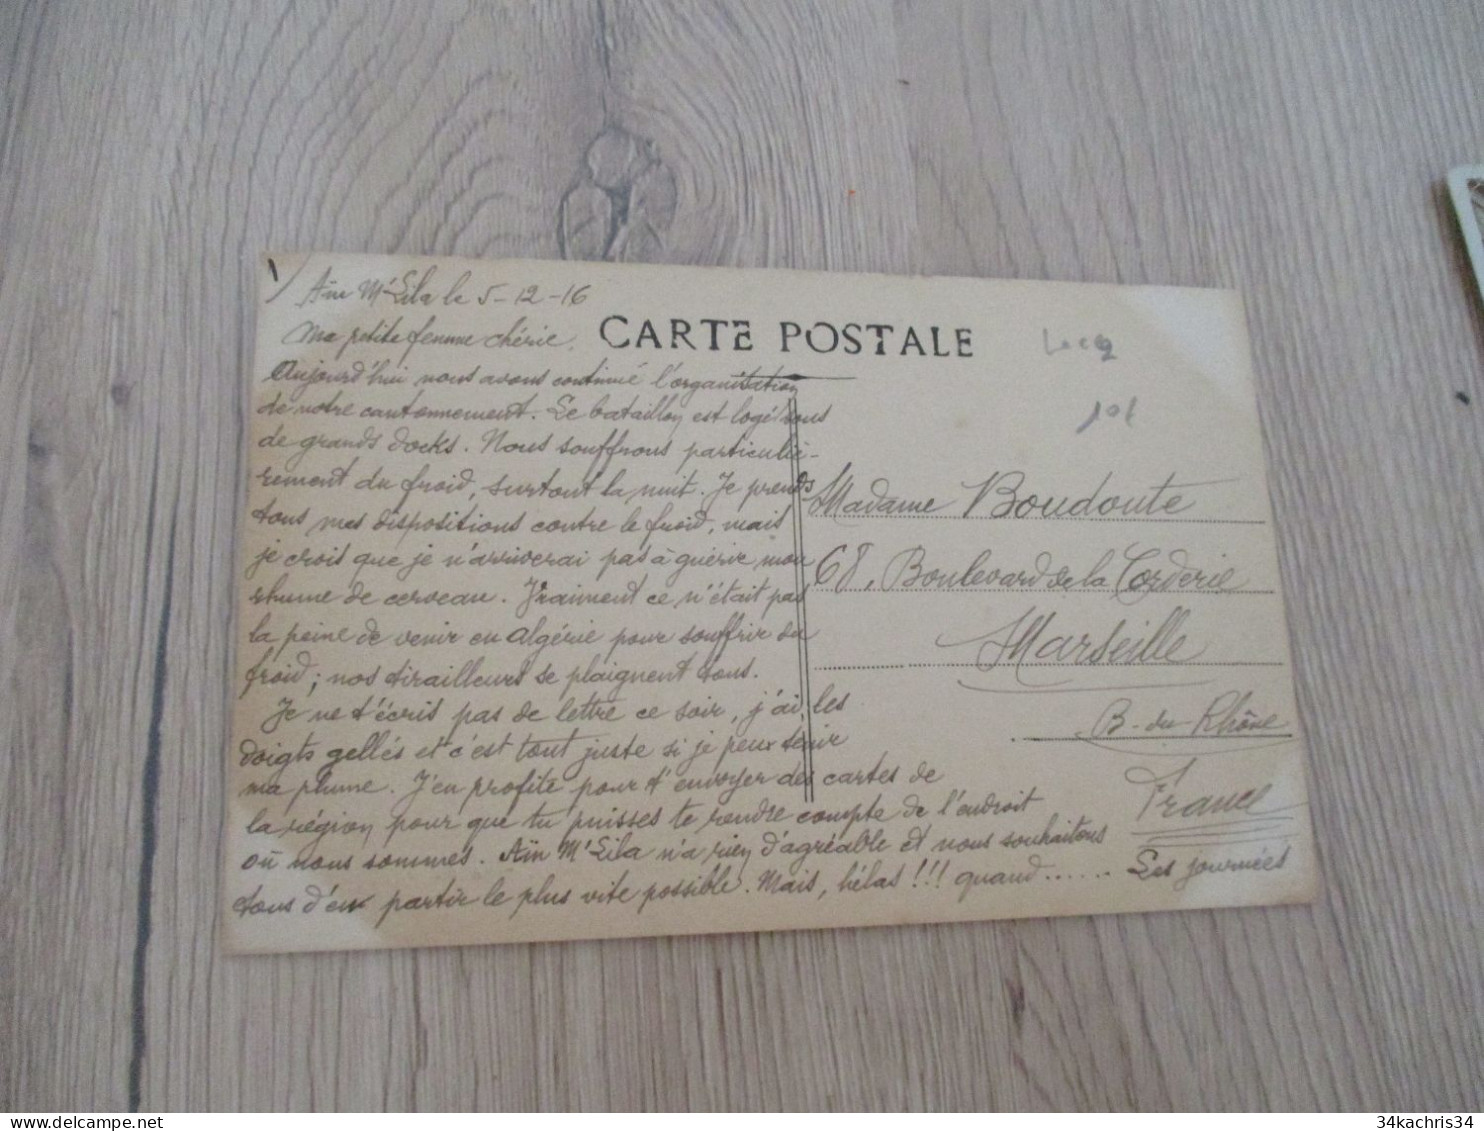 1/ Aïn M'Lila le 5-12-16
Ma petite femme chérie.
CARTE POSTALE
Aujourd'hui nous avons continué l'organisation
de notre cantonnement. Le bataillon est logé sous
de grands docks. Nous souffrons particuliè-
rement du froid, surtout la nuit. Je prends
tous mes dispositions contre le froid, mais
je crois que je n'arriverai pas à guérir mon
rhume de cerveau. Vraiment ce n'était pas
la peine de venir en Algérie pour souffrir du
froid ; nos tirailleurs se plaignent tous.
Je ne t'écris pas de lettre ce soir, j'ai les
doigts gellés et c'est tout juste si je peux tenir
ma plume. J'en profite pour t'envoyer des cartes de
la région pour que tu puisses te rendre compte de l'endroit
où nous sommes. Aïn M'Lila n'a rien d'agréable et nous souhaitons
tous d'en partir le plus vite possible. Mais, hélas !!! quand...... Les journées
101
Madame Boudoute
68, Boulevard de la Corderie
Marseille
B-du-Rhône
France
34kachris34